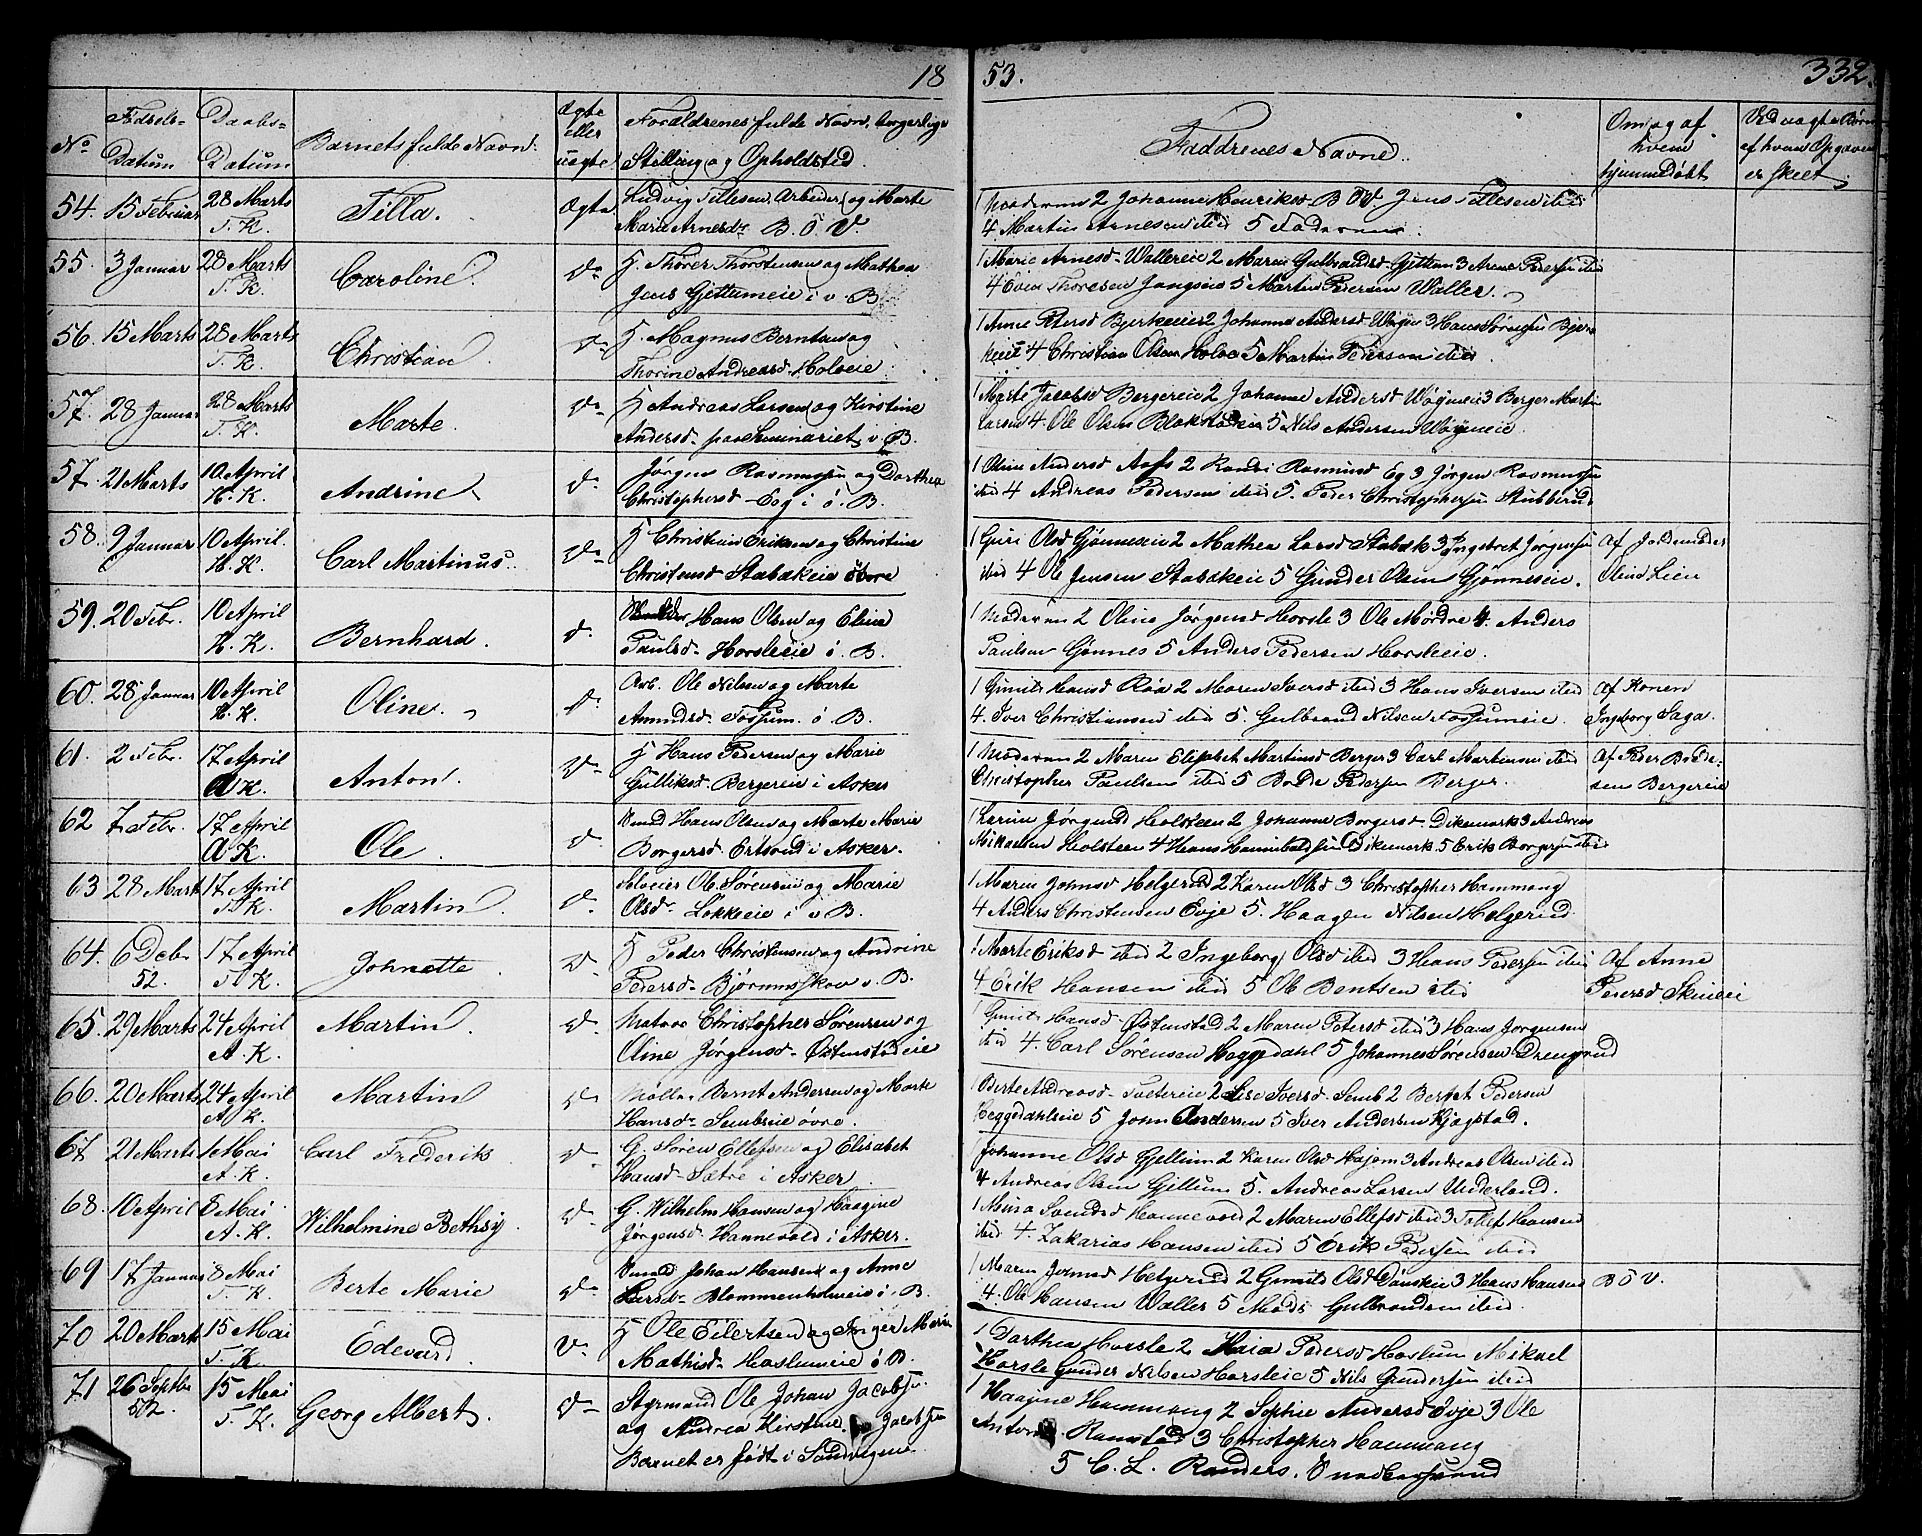 18
53.
332.
No
Fødsels-
Datum
Daabs-
Datum
Barnets fulde Navn.
Ægte
eller
uægte
Forældrenes fulde Navn, borgerlige
Stilling og Opholdsted.
Faddrenes Navne.
Om og af
hvem
hjemmedøbt
Ved uægte Børn
af hvem Opgaven
er skeet
54. 15 Februar 28 Marts T. K. Tilla. Ægte
Ludvig Tillesen, Arbeider, og Marte
Marie Arnesdr B. Ö V.
1 Moderen 2 Johanne Henriksd B Ö V. Jens Tillesen ibid
4 Martin Arnesen ibid 5 Faderen.
55. 3 Januar 28 Marts T. K. Caroline. Do
H. Thorer Thorstensen og Mathea
Jens Gjettumeie i v. B
1 Marie Arnesd Wallereie 2 Maren Gulbrandsd Gjettum 3 Arne Pedersen ibid
4 Even Thoresen 5 Martin Pedersen Waller.
56. 15 Marts 28 Marts T. K. Christian Do
H. Magnus Berntsen og
Thorine Andreasd Holveie
1 Anne Petersd Bjerkeeie 2 Johanne Andersd Wøyen 3 Hans Sørensen Bjer-
keeie 4 Christian Olsen Holve 5 Martin Pedersen ibid.
57. 28 Januar 28 Marts T. K. Marte. Do
H Andreas Larsen og Kirstine
Andersd paa Seminariet v. B.
1 Marte Jacobsd Bergereie 2 Johanne Andersd Wøyeneie 3 Berger Martin
Larsen 4. Ole Olsen 5 Nils Andersen Wøyeneie.
57. 21 Marts 10 April H. K. Andrine Do
Jørgen Rasmussen og Dorthea
Christophersd Eeg i ö. B.
1 Oline Andersd Aas 2 Randi Rasmusd Eg 3 Jørgen Rasmussen
ibid 4 Andreas Pedersen ibid 5. Peder Christophersen Stubberud
58. 9 Januar 10 April. H. K. Carl Martinus. Do
H Christian Eriksen og Christine
Christensd Stabækeie övre
1 Guri Olsd Gjønneseie 2 Mathea Larsd Stabæk 3 Ingebret Jørgensen
ibid 4 Ole Jensen Stabækeie 5 Gunder Olsen Gjønneseie.
Af Jordemoder
Oline Lien
59. 20 Febr. 10 April H. K. Bernhard. D.
Hans Olsen og Eline
Paulsd Horsleeie ö. B.
1 Moderen 2 Oline Jørgensd Horsle 3 Ole Mørdre 4. Anders
Paulsen Gjønnes 5 Anders Pedersen Horsleeie.
60. 28 Januar 10 April H. K. Oline. Do
Arb. Ole Nilsen og Marte
Amundsd Fossum ö B.
1 Gunild Hansd Røa 2 Maren Iversd ibid 3 Hans Iversen ibid
4. Iver Christiansen ibid 5. Gulbrand Nilsen Fossumeie.
Af Konen
Ingeborg Saga.
61. 2 Febr. 17 April A K. Anton. Do
H Hans Pedersen og Marie
Gulliksd Bergereie i Asker
1 Moderen 2 Maren Elisabet Martinsd Berger 3 Carl Martinsen ibid
Christopher Paulsen ibid 5 Bolde Pedersen Berger.
Af Peder Bolde-
sen Bergereie
62 7 Febr. 17 April A K. Ole. D
Svend Hans Olsen og Marte Marie
Borgersd Ertsrud i Asker.
1 Karine Jørgensd Holsteen 2 Johanne Borgersd Dikemark 3 Andreas
Mikaelsen Holsteen 4 Hans Hannibalsen Dikemark 5 Erik Borgersen ibid
63 28 Mart 17 April T. K. Martin. Do
Selveier Ole Sørensen og Marie
Olsdr Løkkeeie i v B.
1 Maren Johnsd Helgerud 2 Karen Olsd 3 Christopher Hammang
4 Anders Christensen Evje 5. Haagen Nilsen Helgerud
64. 6 Decbr 52. 17 April T. K. Johnette Do
H Peder Christensen og Andrine
Pedersd Bjørnmsskov v. B.
1 Marte Eriksd ibid 2 Ingeborg Olsd ibid 3 Hans Pedersen ibid
4 Erik Hansen ibid 5 Ole Bentsen ibid
Af Anne
Petersd
65. 29 Marts 24 April A. K. Martin. Do
Matros Christopher Sørensen og
Oline Jørgensd Østenstadeie
1 Gunild Hansd Østenstad 2 Maren Petersd ibid 3 Hans Jørgensen
ibid 4. Carl Sørensen Heggedahl 5 Johannes Sørensen Drengsrud
66. 20 Marts 24 April A. K. Martin Do
Møller Bernt Andersen og Marte
Hansd Sembeie övre.
1 Berte Andreasd 2 Lise Iversd Semb 2 Bernt Pedersen
Heggedahleie 5 John Andersen 5 Iver Andersen Kjøgstad.
67 21 Marts 1 Mai A. K. Carl Frederik Do
G. Søren Ellefsen og Elisabet
Hansd Sætre i Asker
Johanne Olsd Gjellum 2 Karen Olsd Hajem 3 Andreas Olsen ibid
4 Andreas Olsen Gjellum 5. Andreas Larsen Underland.
68. 10 April 8 Mai A. K. Wilhelmine Bethsy. Do
G. Wilhelm Hansen og Haagine
Jørgensd Hannevold i Asker.
1 Mina Svendsd Hannevold 2 Maren Ellefsd ibid 3 Tollef Hansen
ibid 4. Zakarias Hansen ibid 5 Erik Pedersen ibid
69 17 Januar 8 Mai T. K. Berte Marie Do
Svend Johan Hansen og Anne
Larsd Blommenholmeie i. B.
1 Maren Johnsd Helgerud 2 Gunild Olsd Dønskie 3 Hans Hansen
4. Ole Hansen Waller 5 Mads Gulbrandsen ibid.
B Ö V.
70 20 Marts 15 Mai T. K Edevard Do
H Ole Eilertsen og Inger Marie
Mathisd Haslumeie ö. B.
1 Dorthea Horsle 2 Maia Pedersd Haslum Mikael
Horsle Gunder Nilsen Horsleie 5 Nils Gundersen ibid
71 26 Septbr 52. 15 Mai T. K. Georg Albert. Do
Styrmand Ole Johan Jacobsen
og Andrea Kirstine Jacobsen
Barnet er født i Sandvigene
1 Haagine Hammang 2 Sophie Andersd Evje 3 Ole
Anton Ramstad 3 Christopher Hammang
5 C. L. Randers.